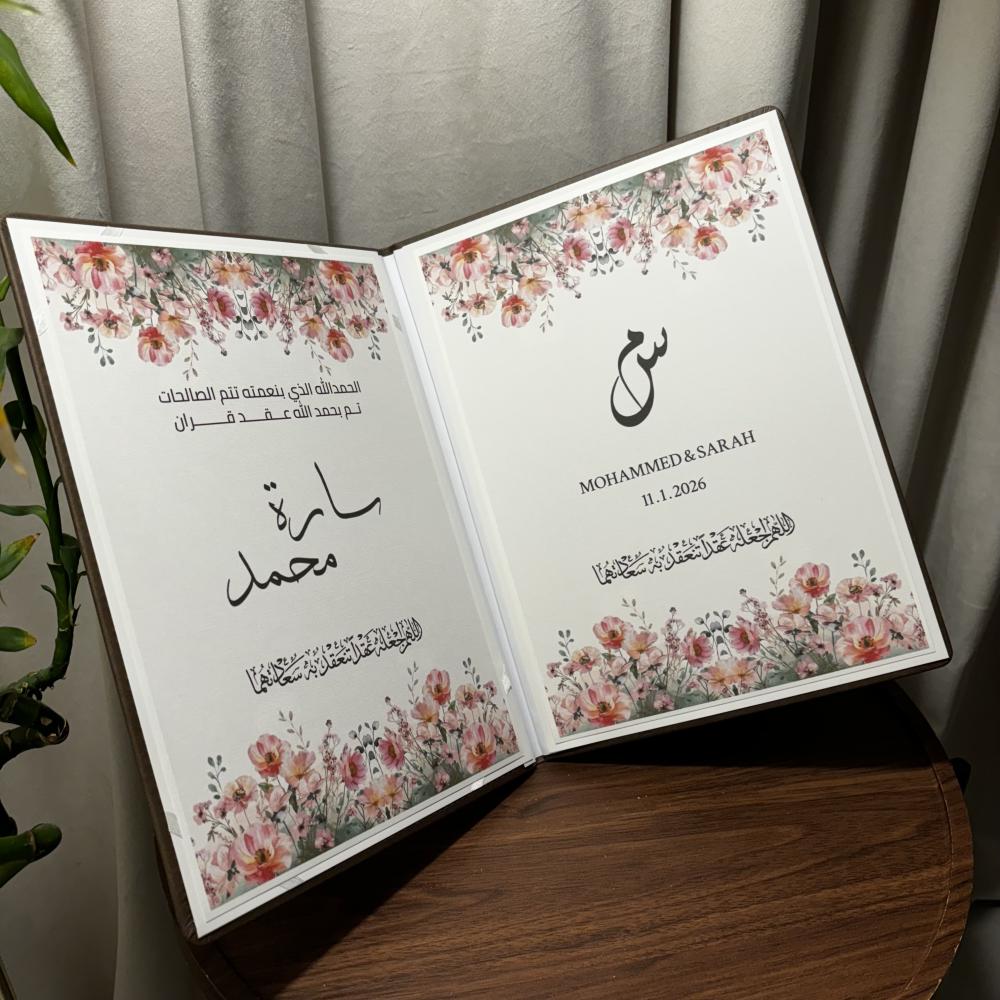 الحمدالله الذي بنعمته تتم الصالحات
تم بحمد الله عقد قران
سارة
محمد
اللهم اجعله عقداً تنعقد به سعادتهما
س م
MOHAMMED & SARAH
11.1.2026
اللهم اجعله عقداً تنعقد به سعادتهما